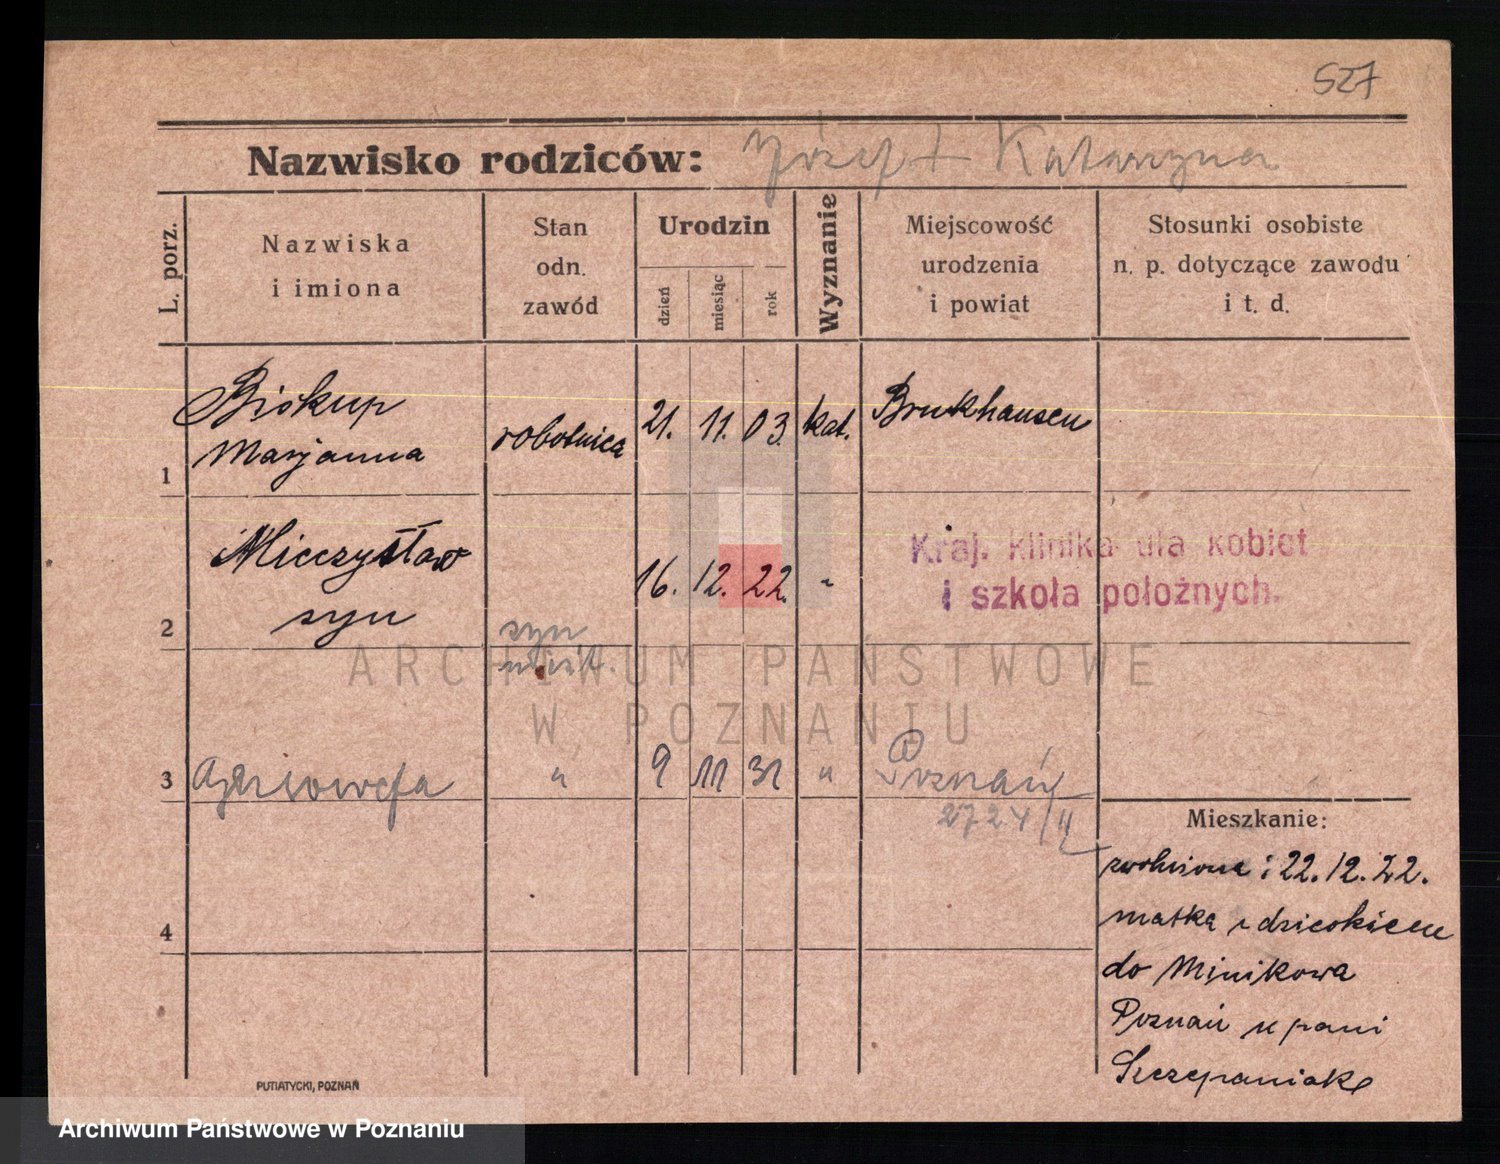 527
Nazwisko rodziców: Józef + Katarzyna
L. porz.
Nazwiska
i imiona
Stan
odn.
zawód
Urodzin
dzień
miesiąc
rok
Wyznanie
Miejscowość
urodzenia
i powiat
Stosunki osobiste
n. p. dotyczące zawodu
i t. d.
1
Biskup
Marjanna
robotnica
21. 11. 03.
kat.
Bruckhausen
2
Mieczysław
syn
16. 12. 22. "
Kraj. klinika dla kobiet
i szkoła położnych.
syn
3
" 9 11 31 "
Poznań
2724/II
4
Mieszkanie:
22.12.22.
matka z dzieckiem
do Minikowa
Poznań u pani
Szczepaniak
PUTIATYCKI, POZNAŃ
ARCHIWUM PAŃSTWOWE
W POZNANIU
Archiwum Państwowe w Poznaniu